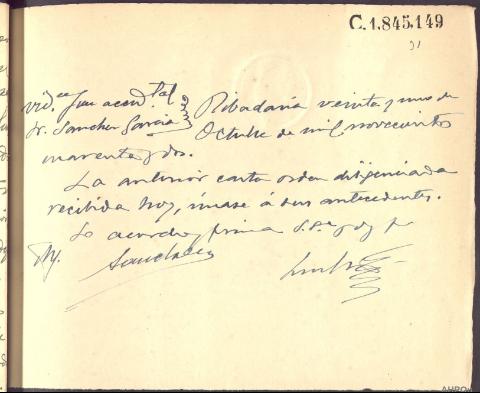 C.1.845.149
91
Juez
Sr. Sanchez Garcia Ribadavia veinte y uno de
Octubre de mil novecientos
cuarenta y dos.
La anterior carta orden diligenciada
recibida hoy, únase á sus antecedentes.
Lo acordó y firma S.Sª y doy fe
Sanchez